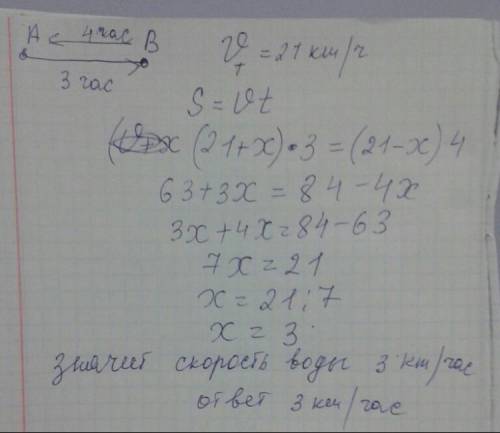 A 4 час B
3 час
V_T = 21 км/ч
S = Vt
(21+x)·3 = (21-x)4
63+3x = 84-4x
3x+4x=84-63
7x = 21
x = 21:7
x = 3
значит скорость воды 3 км/час
ответ 3 км/час